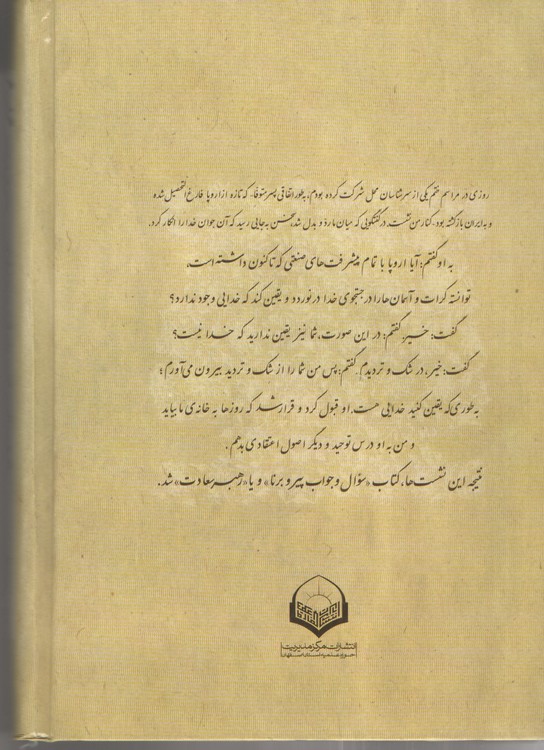 روزی در مراسم ختم یکی از سرشناسان محل شرکت کرده بودم، به‌طور اتفاقی پسر متوفّا - که تازه از اروپا فارغ التحصیل شده
و به ایران بازگشته بود - کنار من نشست. در گفتگویی که میان ما ردّ و بدل شد، سخن به جایی رسید که آن جوان خدا را انکار کرد.
به او گفتم: آیا اروپا با تمام پیشرفت‌های صنعتی که تاکنون داشته است،
توانسته کرات و آسمان‌ها را در جستجوی خدا در نوردد و یقین کند که خدایی وجود ندارد؟
گفت: خیر. گفتم: در این صورت، شما نیز یقین ندارید که خدا نیست؟
گفت: خیر، در شک و تردیدم. گفتم: پس من شما را از شک و تردید بیرون می‌آورم؛
به‌طوری که یقین کنید خدایی هست. او قبول کرد و قرار شد که روزها به خانه‌ی ما بیاید
و من به او درس توحید و دیگر اصول اعتقادی بدهم.
نتیجه این نشست‌ها، کتاب «سؤال و جواب پیر و برنا» و یا «رهبر سعادت» شد.
انتشارات مرکز مدیریت
حوزه علمیه استان اصفهان